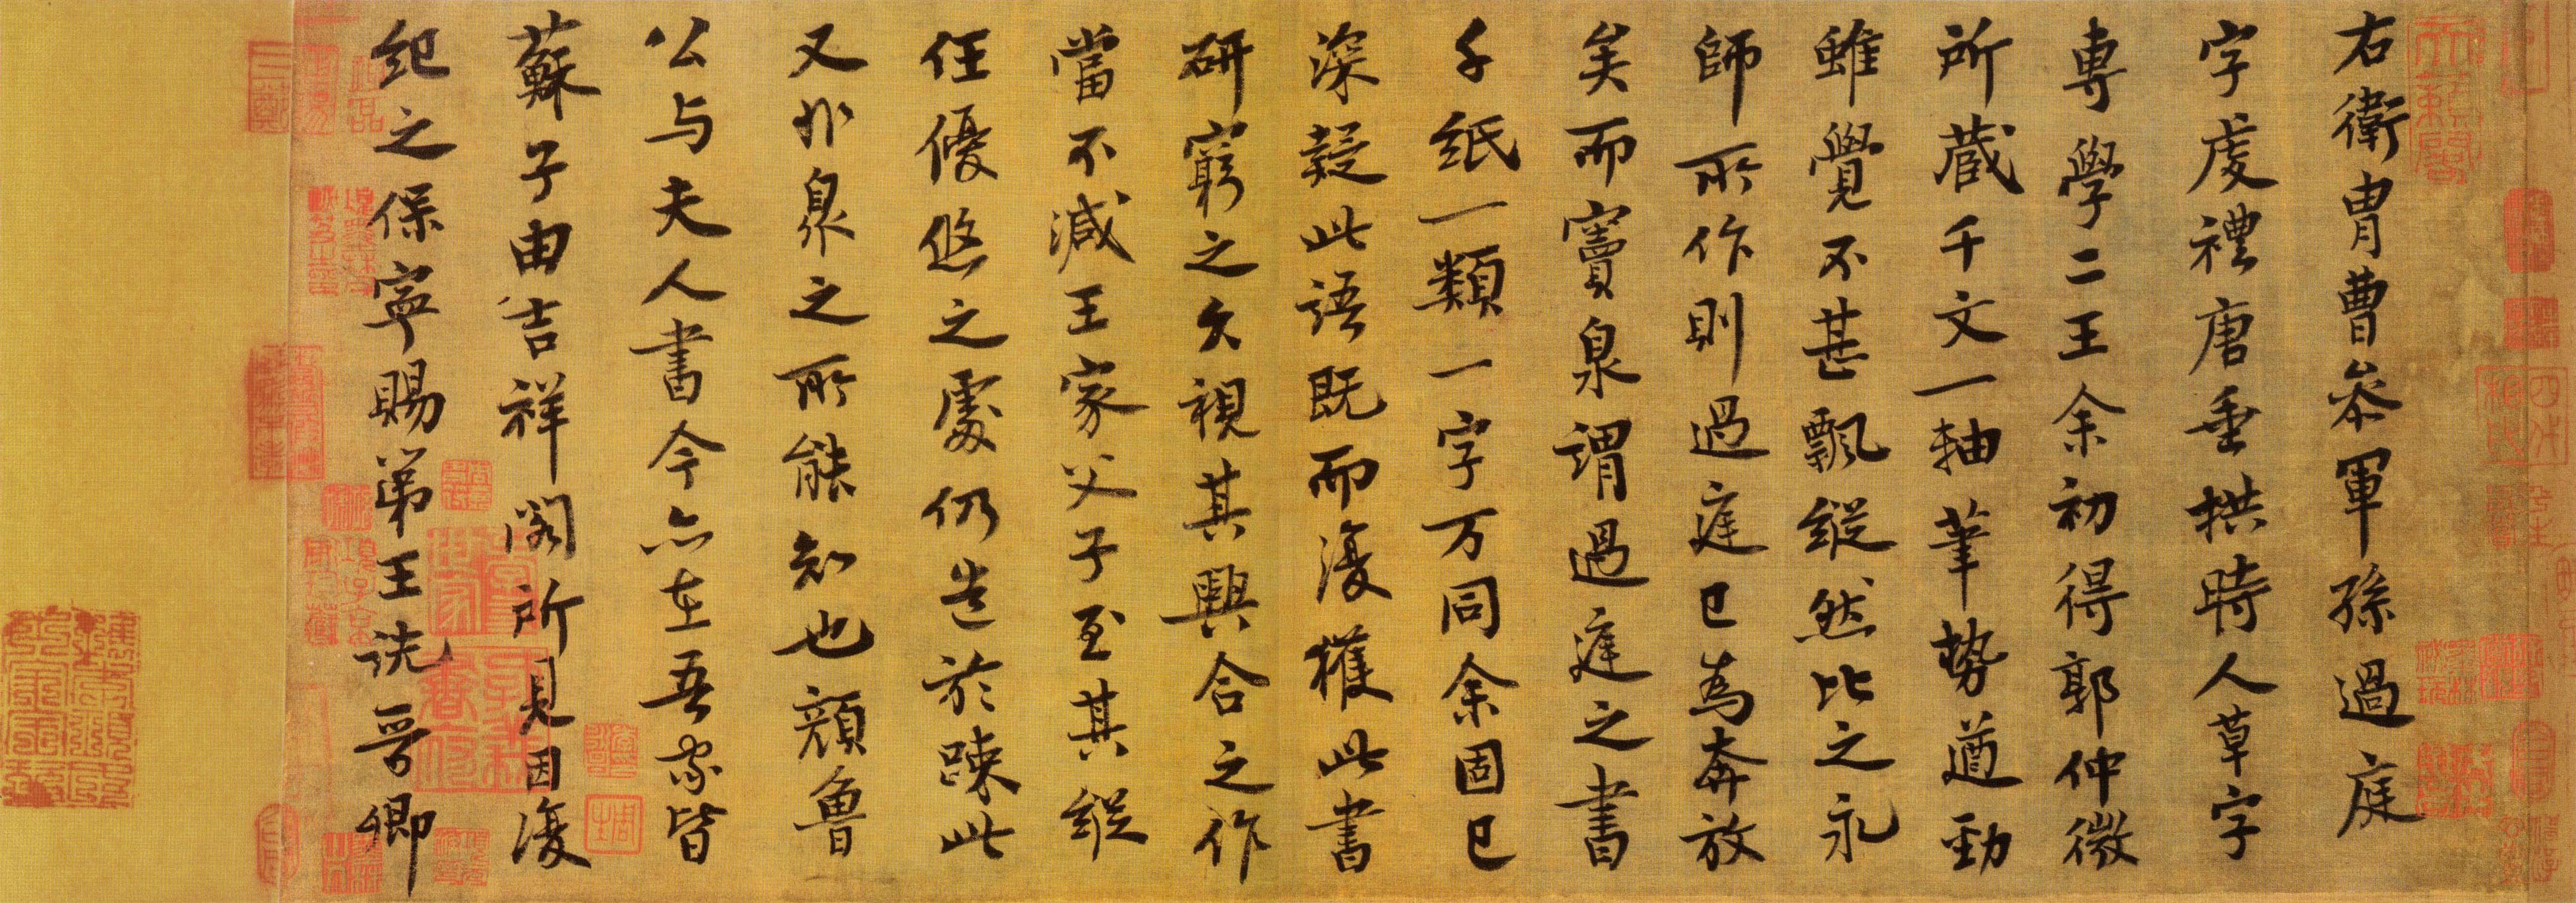 右衛胄曹叅軍孫過庭
字虔禮唐垂拱時人草字
専學二王余初得郭仲微
所藏千文一軸筆勢遒勁
雖覺不甚飄縱然比之永
師所作則過庭已為奔放
矣而竇泉謂過庭之書
千紙一類一字万同余固已
深疑此語既而復獲此書
研窮之久視其興合之作
當不減王家父子至其縱
任優悠之處仍造於踈此
又非泉之所能知也顔魯
公与夫人書今亦在吾家皆
蘇子由吉祥閣所見因復
紀之保寧賜第王詵晉卿